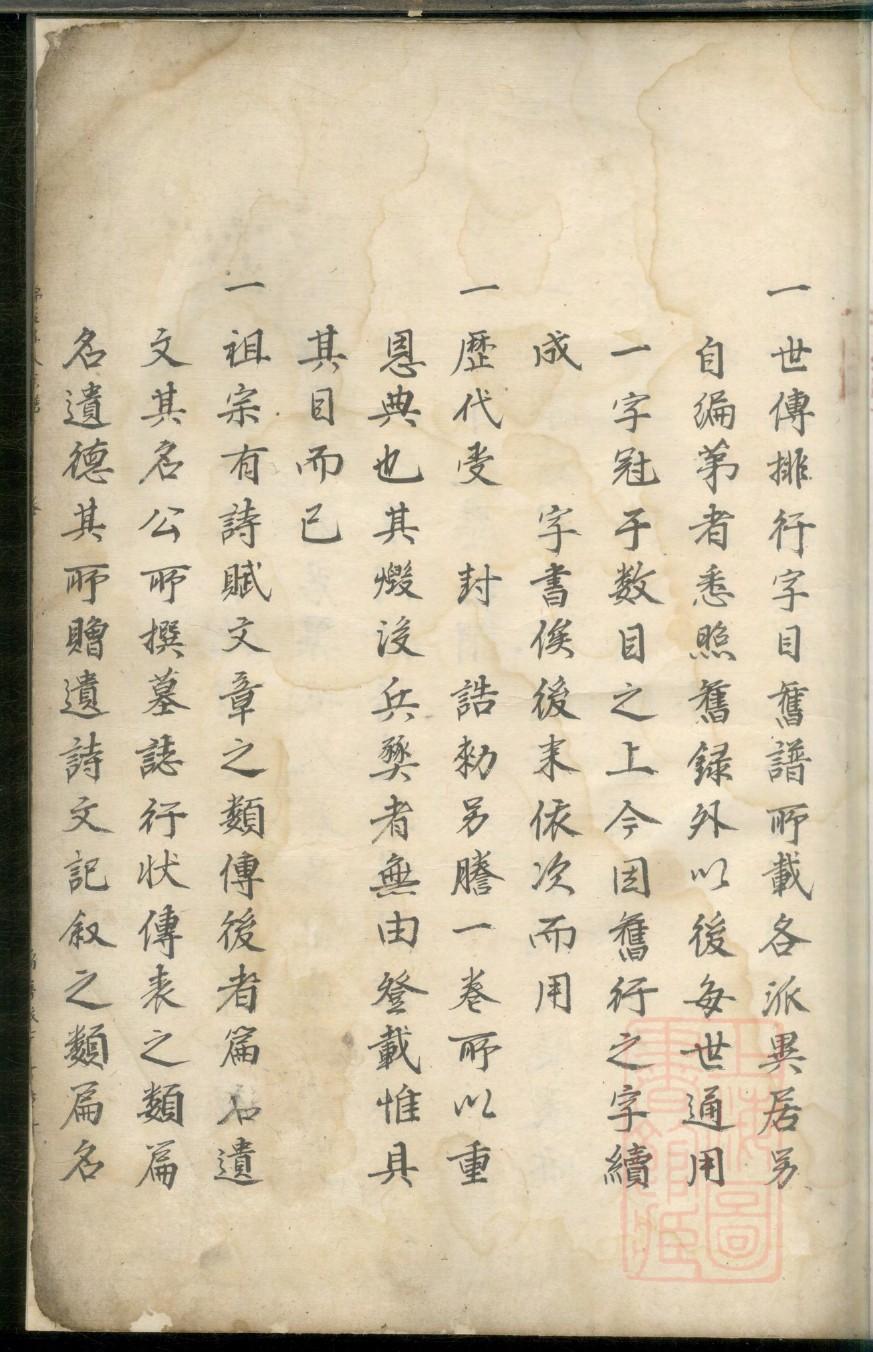 一世傳排行字目舊譜所載各派異居另
自編第者悉照舊録外以後每世通用
一字冠于数目之上今因舊行之字續
成　　字書俟後来依次而用
一歷代受　封　誥勑另謄一卷所以重
恩典也其燬没兵燹者無由登載惟具
其目而已
一祖宗有詩賦文章之類傳後者篇名遺
文其名公所撰墓誌行状傳表之類篇
名遺德其所贈遺詩文記叙之類篇名
上海圖書館藏